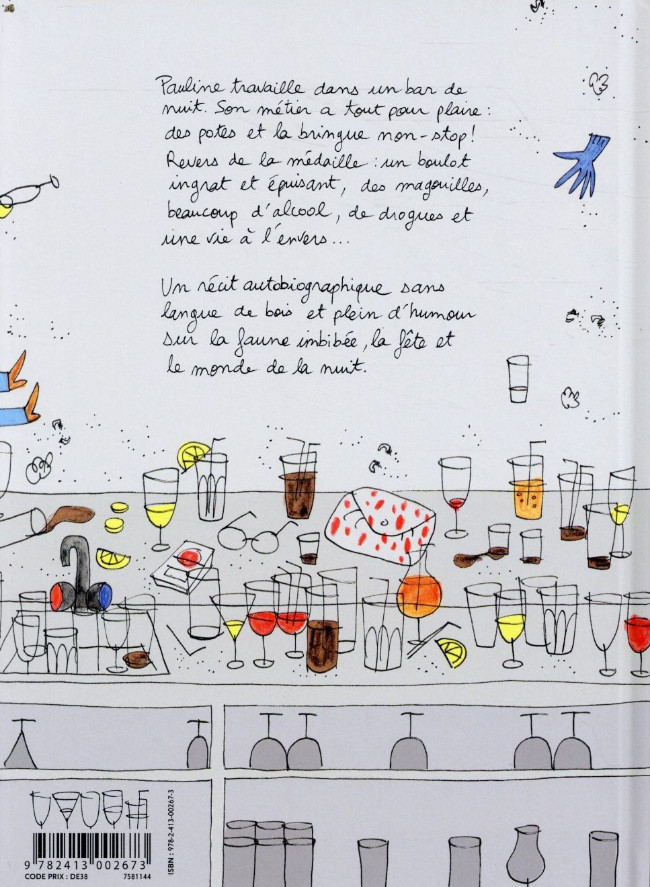 Pauline travaille dans un bar de
nuit. Son métier a tout pour plaire :
des potes et la bringue non-stop !
Revers de la médaille : un boulot
ingrat et épuisant, des magouilles,
beaucoup d'alcool, de drogues et
une vie à l'envers...
Un récit autobiographique sans
langue de bois et plein d'humour
sur la faune imbibée, la fête et
le monde de la nuit.
9 782413 002673
CODE PRIX : DE38 7581144
ISBN : 978-2-413-00267-3